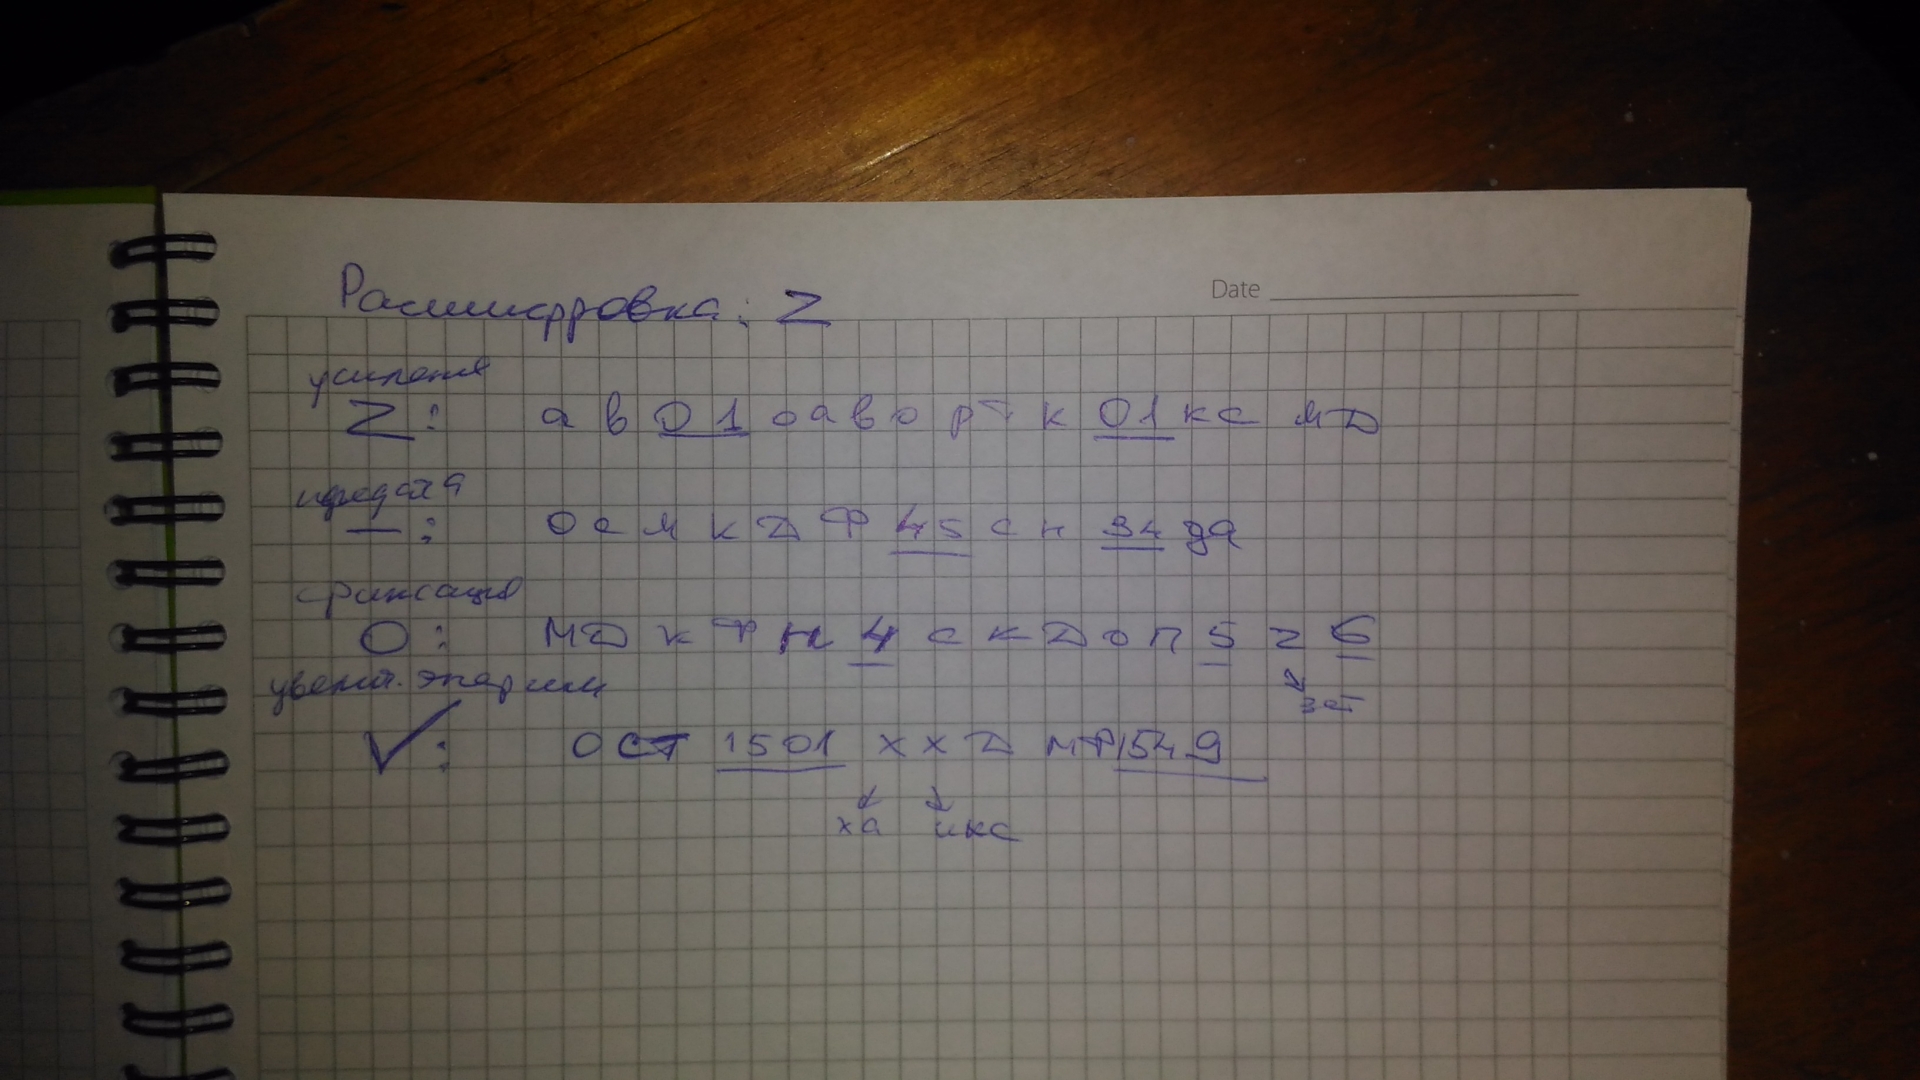 Расшифровка: Z
Date
усиления
Z: а в 01 о а в о р т к 01 к с м д
передача
—: о с м к д ф 45 с н 34 да
фиксация
О: м д к ф н 4 с к д о п 5 z 6
увелич. энергии
зет
✓: о ст 1501 х х д м ф 1549
ха икс